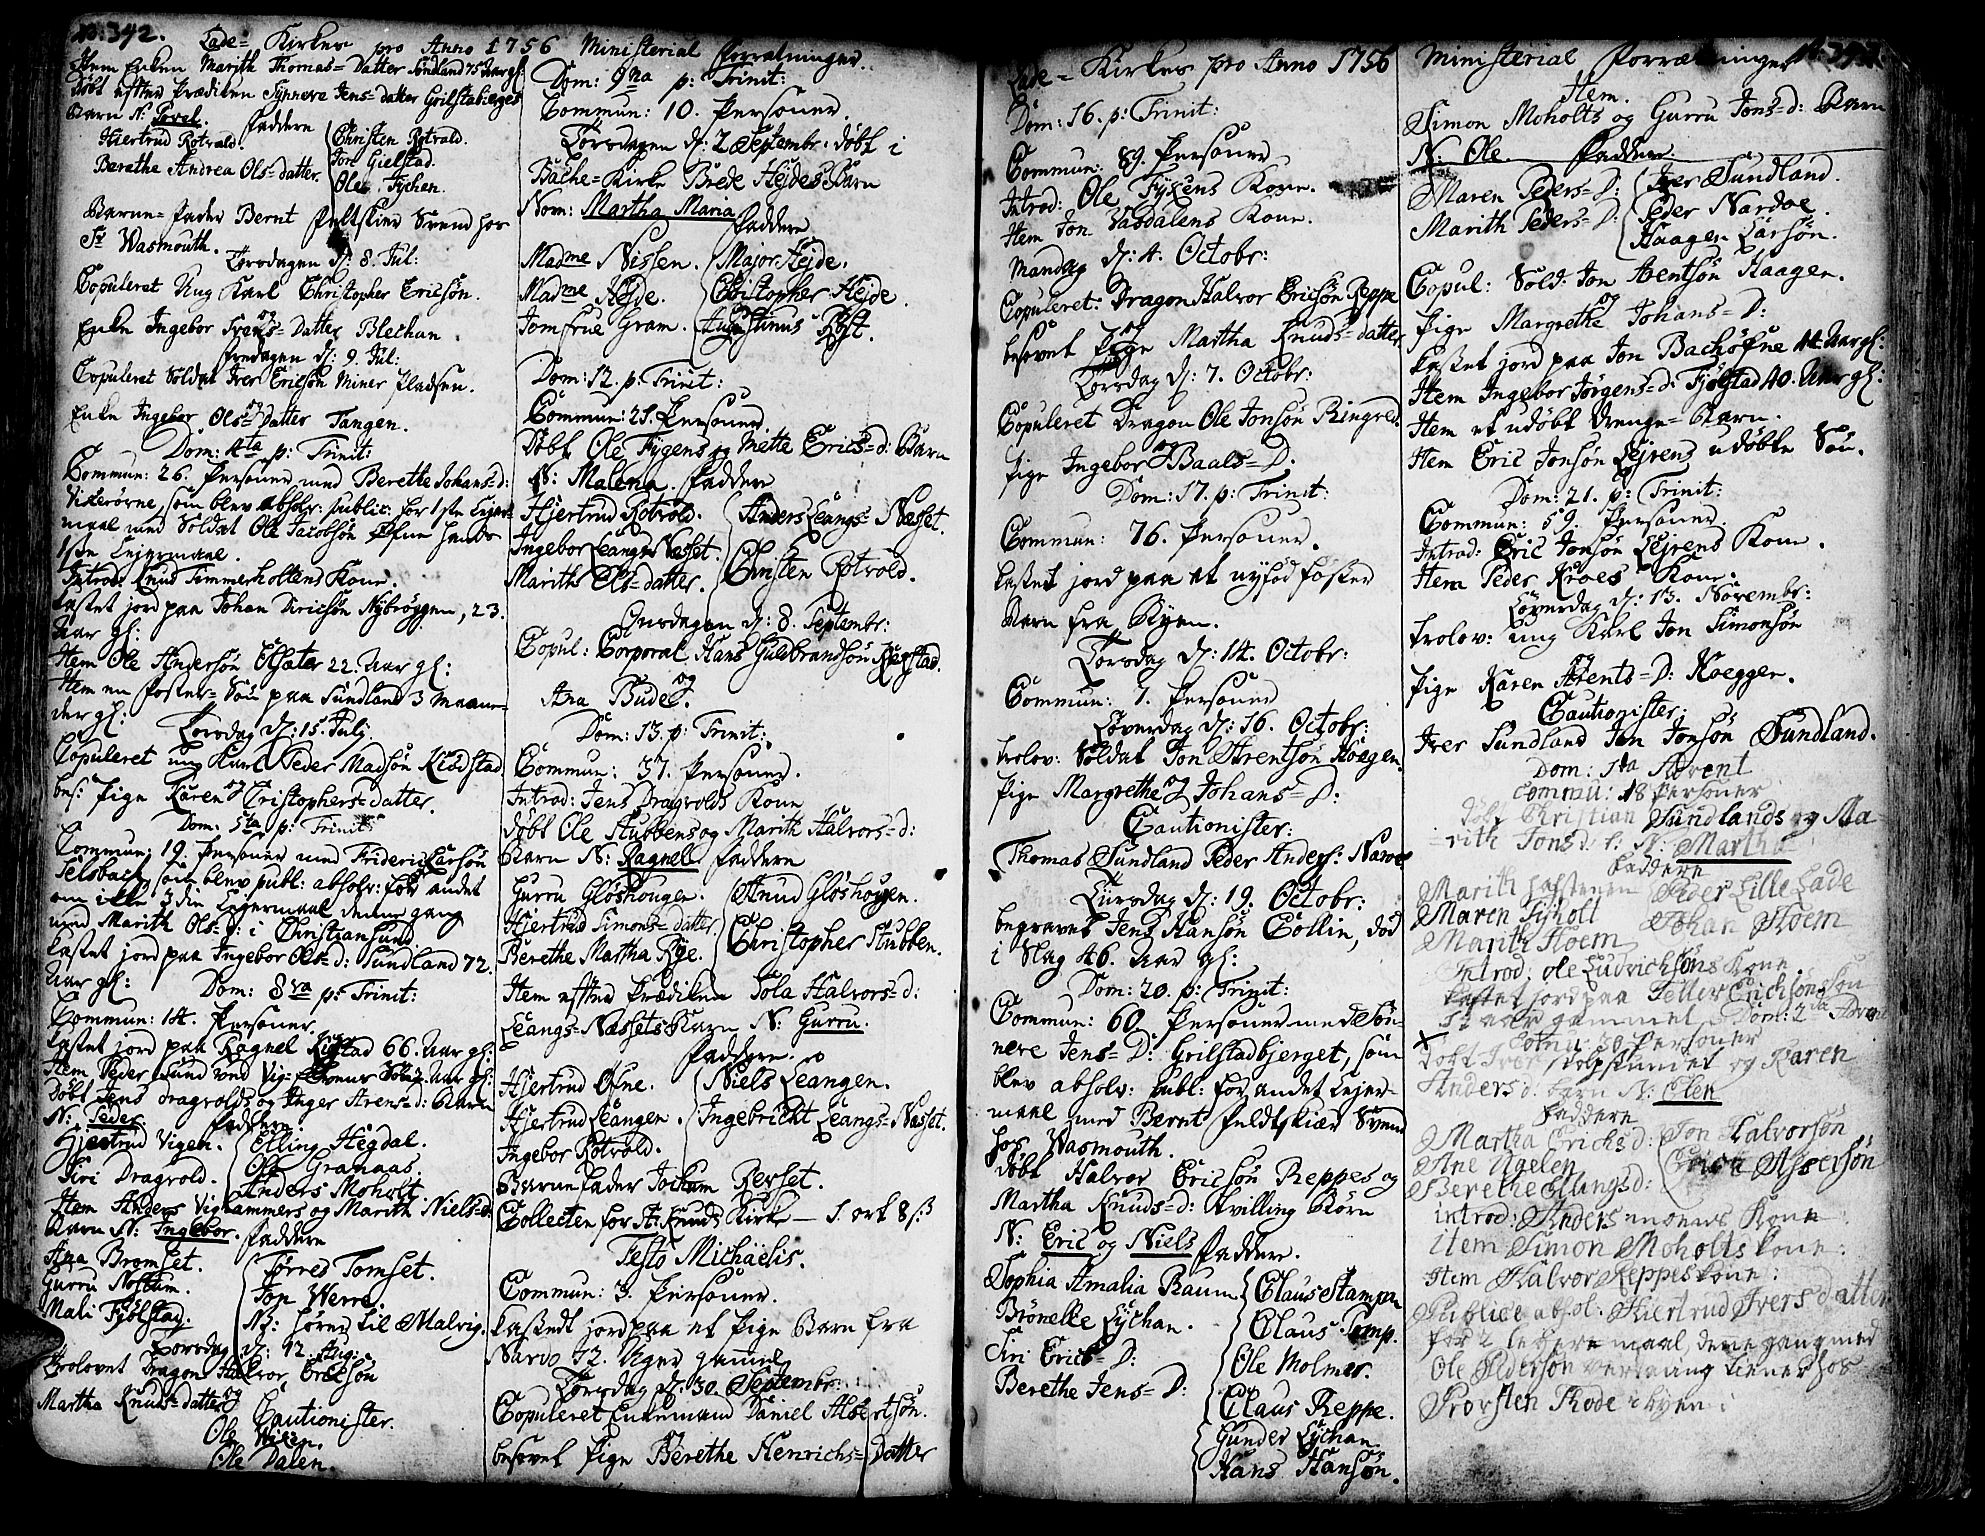 No: 342.
Lade= Kirkes pro Anno 1756 Ministerial Forretninger.
Item Enken Marith Thomas= Datter Sundland 75 Aar gl:
Døbt efter Prædiken Synneve Jens= datter Grilstabierges
Barn N: Povel. Faddere
Hiertrud Rotvold. Christen Rotvold.
Jon Gielstad.
Berethe Andrea Ols= datter. Ole Tychen.
Barne= fader Bernt Feltskier Svend hos
Sr Wasmouth.
Torsdagen d: 8. Jul:
Copuleret Ung Karl Christopher Ericsøn.
og
Enke Ingebor Frans= Datter Blechan.
Fredagen d: 9. Jul:
Copuleret Soldat Iver Ericsøn Miner Pladsen.
og
Enke Ingebor Ols= Datter Tangen.
Dom: 4ta p: Trinit:
Commun: 26. Personer med Berethe Johans= d:
Vikerørne, som blev absolv: public: for 1ste Lejer=
maal med Soldat Ole Jacobsøn Øfne hendes
1ste Lejermaal.
Introd: Knud Timmerholtens Kone.
Kastet jord paa Johan Diricsøn Nybryggen, 23.
Aar gl:
Item Ole Andersøn 22. Aar gl:
Item en Foster= Søn paa Sundland 3 Maane=
der gl:
Torsdag d: 15. Julj.
Copuleret ung Karl Peder Madsøn Kiøstad
og
bes: Pige Karen Cristophers= datter.
Dom: 5ta p: Trinit:
Commun: 19. Personer med Frideric Larsøn
Selsbach, som blev publ: absolv: for andet
om ikke 3die Lejermaal denne gang
med Marith Ols= d: i Christiansund
Kastet jord paa Ingebor Ols= d: Sundland 72.
Aar gl:
Dom: 8va p: Trinit:
Commun: 14. Personer.
Kastet jord paa Ragnel Rigstad 66. Aar gl:
Item Peder Lund ved Vig= Aar gl:
Døbt Jens Dragvolds og Inger Arens= d: Barn
N: Peder. Faddere.
Hjertrud Vigen. Elling Hegdal.
Ole Granaas.
Siri Dragvold. Anders Moholt.
Item Anders Vighammers og Marith Niels= d:
Barn N: Ingebor. Faddere
Ana Bromset. Torred Tomset.
Gurru Nostum. Jon Werre.
Mali Fjølstad. NB: hører til Malvig.
Torsdag d: 12. Aug:
Trolovet Dragon Halvor Ericsøn
og
Martha Knuds= datter
Cautionister.
Ole Wiken.
Ole Dalen.
Dom: 9na p: Trinit:
Commun: 10. Personer.
Torsdagen d: 2 Septembr: døbt i
Bache= Kirke Brede Hejdes Barn
Nom: Martha Maria
Faddere
Madme Nissen. Major Hejde.
Madme Hejde. Christopher Hejde.
Jomfrue Gram. Augustinus Røst.
Dom: 12. p: Trinit:
Commun: 25. Personer.
Døbt Ole Fygens og Mette Erics= d: Barn
N: Malena. Faddere
Hjertrud Rotvold. Anders Leangs= Næsset.
Ingebor Leangs= Næsset.
Marithe Ols= datter. Christen Rotvold.
Onsdagen d: 8. Septembr:
Copul: Corporal Hans Guldbrandsøn Regstad.
og
Ana Bude.
Dom: 13. p: Trinit:
Commun: 37. Personer.
Introd: Jens Dragvolds Kone
Døbt Ole Stubbens og Marith Halvors= d:
Barn N: Ragnell Faddere
Gurru Gløshougen. Knud Gløshougen.
Hjertrud Simons= datter.
Berethe Martha Rye. Christopher Stubben.
Item efter Prædiken Sola Halvors= d:
Leangs= Næssets Barn N: Gurru.
Faddere.
Hjertrud Øfne. Niels Leangen.
Hjertrud Leangen. Ingebricht Leangs= Næsset.
Ingebor Rotvold.
Barnefader Jochum Reeset.
Collecten for St: Knuds Kirke — 1. ort 8 ß
Festo Michaëlis.
Commun: 3. Personer.
Kastedt jord paa et Pige Barn fra
Narvo 12. Uger gammel
Torsdag d: 30. Septembr:
Copuleret Enkemand Daniel Albertsøn.
besovet Pige Berethe Henrichs= Datter
Lade= Kirkes pro Anno 1756 Ministerial Forretninger No: 343.
Dom: 16. p: Trinit:
Commun: 89. Personer
Introd: Ole Fyxens Kone.
Item Jon Vasdalens Kone.
Mandag d: 4. Octobr:
Copuleret: Dragon Halvor Ericsøn Reppe
og
besovet Pige Martha Knuds= datter
Torsdag d: 7. Octobr:
Copuleret Dragon Ole Jonsøn Ringred.
og
Pige Ingebor Baals= D:
Dom: 17. p: Trinit:
Commun: 76. Personer.
Kastet jord paa et nyfød foster
Barn fra Byen.
Torsdag d: 14. Octobr:
Commun: 7. Personer
Løverdag d: 16. Octobr:
Trolov: Soldat Jon Arentsøn Hoegen.
og
Pige Margrethe Johans= D:
Cautionister:
Thomas Sundland Peder Anders: Narvo
Tirsdag d: 19. Octobr:
begravet Jens Hansøn Collin, død
i Slag 46. Aar gl:
Dom: 20. p: Trinit:
Commun: 60. Personer med Søn=
neve Jens= D: Grilstadbjerget, som
blev absolv: publ: for andet Lejer=
maal med Bernt Feldtskiær Svend
hos Wasmouth.
Døbt Halvor Ericsøn Reppes og
Martha Knuds= d: tvilling Børn
N: Eric og Niels Faddere.
Sophia Amalia Baum Claus Stampen
Brønelle Lychan. Claus Pomp.
Siri Erics= D: Ole Molmer.
Berethe Jens= D: Claus Reppe.
Gunder Lychan
Hans Hansøn.
Item.
Simon Moholts og Gurru Jons= d: Barn
N: Ole. Faddere
Maren Peders= D: Iver Sundland.
Marith Peders= D: Peder Nardoe.
Haagen Larsøn.
Copul: Sold: Jon Arentsøn Haagen.
og
Pige Margrethe Johans= D:
Kastet jord paa Jon Bachøfne 44 Aar gl:
Item Ingebor Jørgens= d: Fjølstad 40. Aar gl:
Item et udøbt Drenge= Barn.
Item Eric Jonsøn Lejrens udøbte Søn.
Dom: 21. p: Trinit:
Commun: 59. Personer.
Introd: Eric Jonsøn Lejrens Kone.
Item Peder Kroes Kone.
Løverdag d: 13. Novembr:
Trolov: ung Karl Jon Simonsøn
og
Pige Karen Arents= D: Hoeggen.
Cautionister:
Iver Sundland Jon Jonsøn Sundland.
Dom: 1ma Advent
Commu: 18 Personer
døbt Christian Sundlands og Ma=
rith Jons d: b: N: Martha
Faddere
Marith hafstenen Peder Lille Lade
Maren Tyholt Johan Hoem
Marith Hoem
Introd: Ole Ludvichsøns Kone
Kastet jord paa Peller Erichsøns søn
12 aar gammel Dom: 2da Advent
Comu: 30 Personer
Døbt Iver stolpstundet og Karen
Anders d: barn N: Elen
Faddere
Martha Erichs d: Jon Halvorsøn
Ane Ugelen Erich Ajsersøn
Berethe Ellings d:
introd: Anders moens Kone
item Simon Moholts kone:
item Halvor Reppes kone:
Publice absol: Hiertrud Ivers datter
for 2 lejermaal, denne gang med
Ole Pedersøn tiener hos
Torsten Rode i byen: